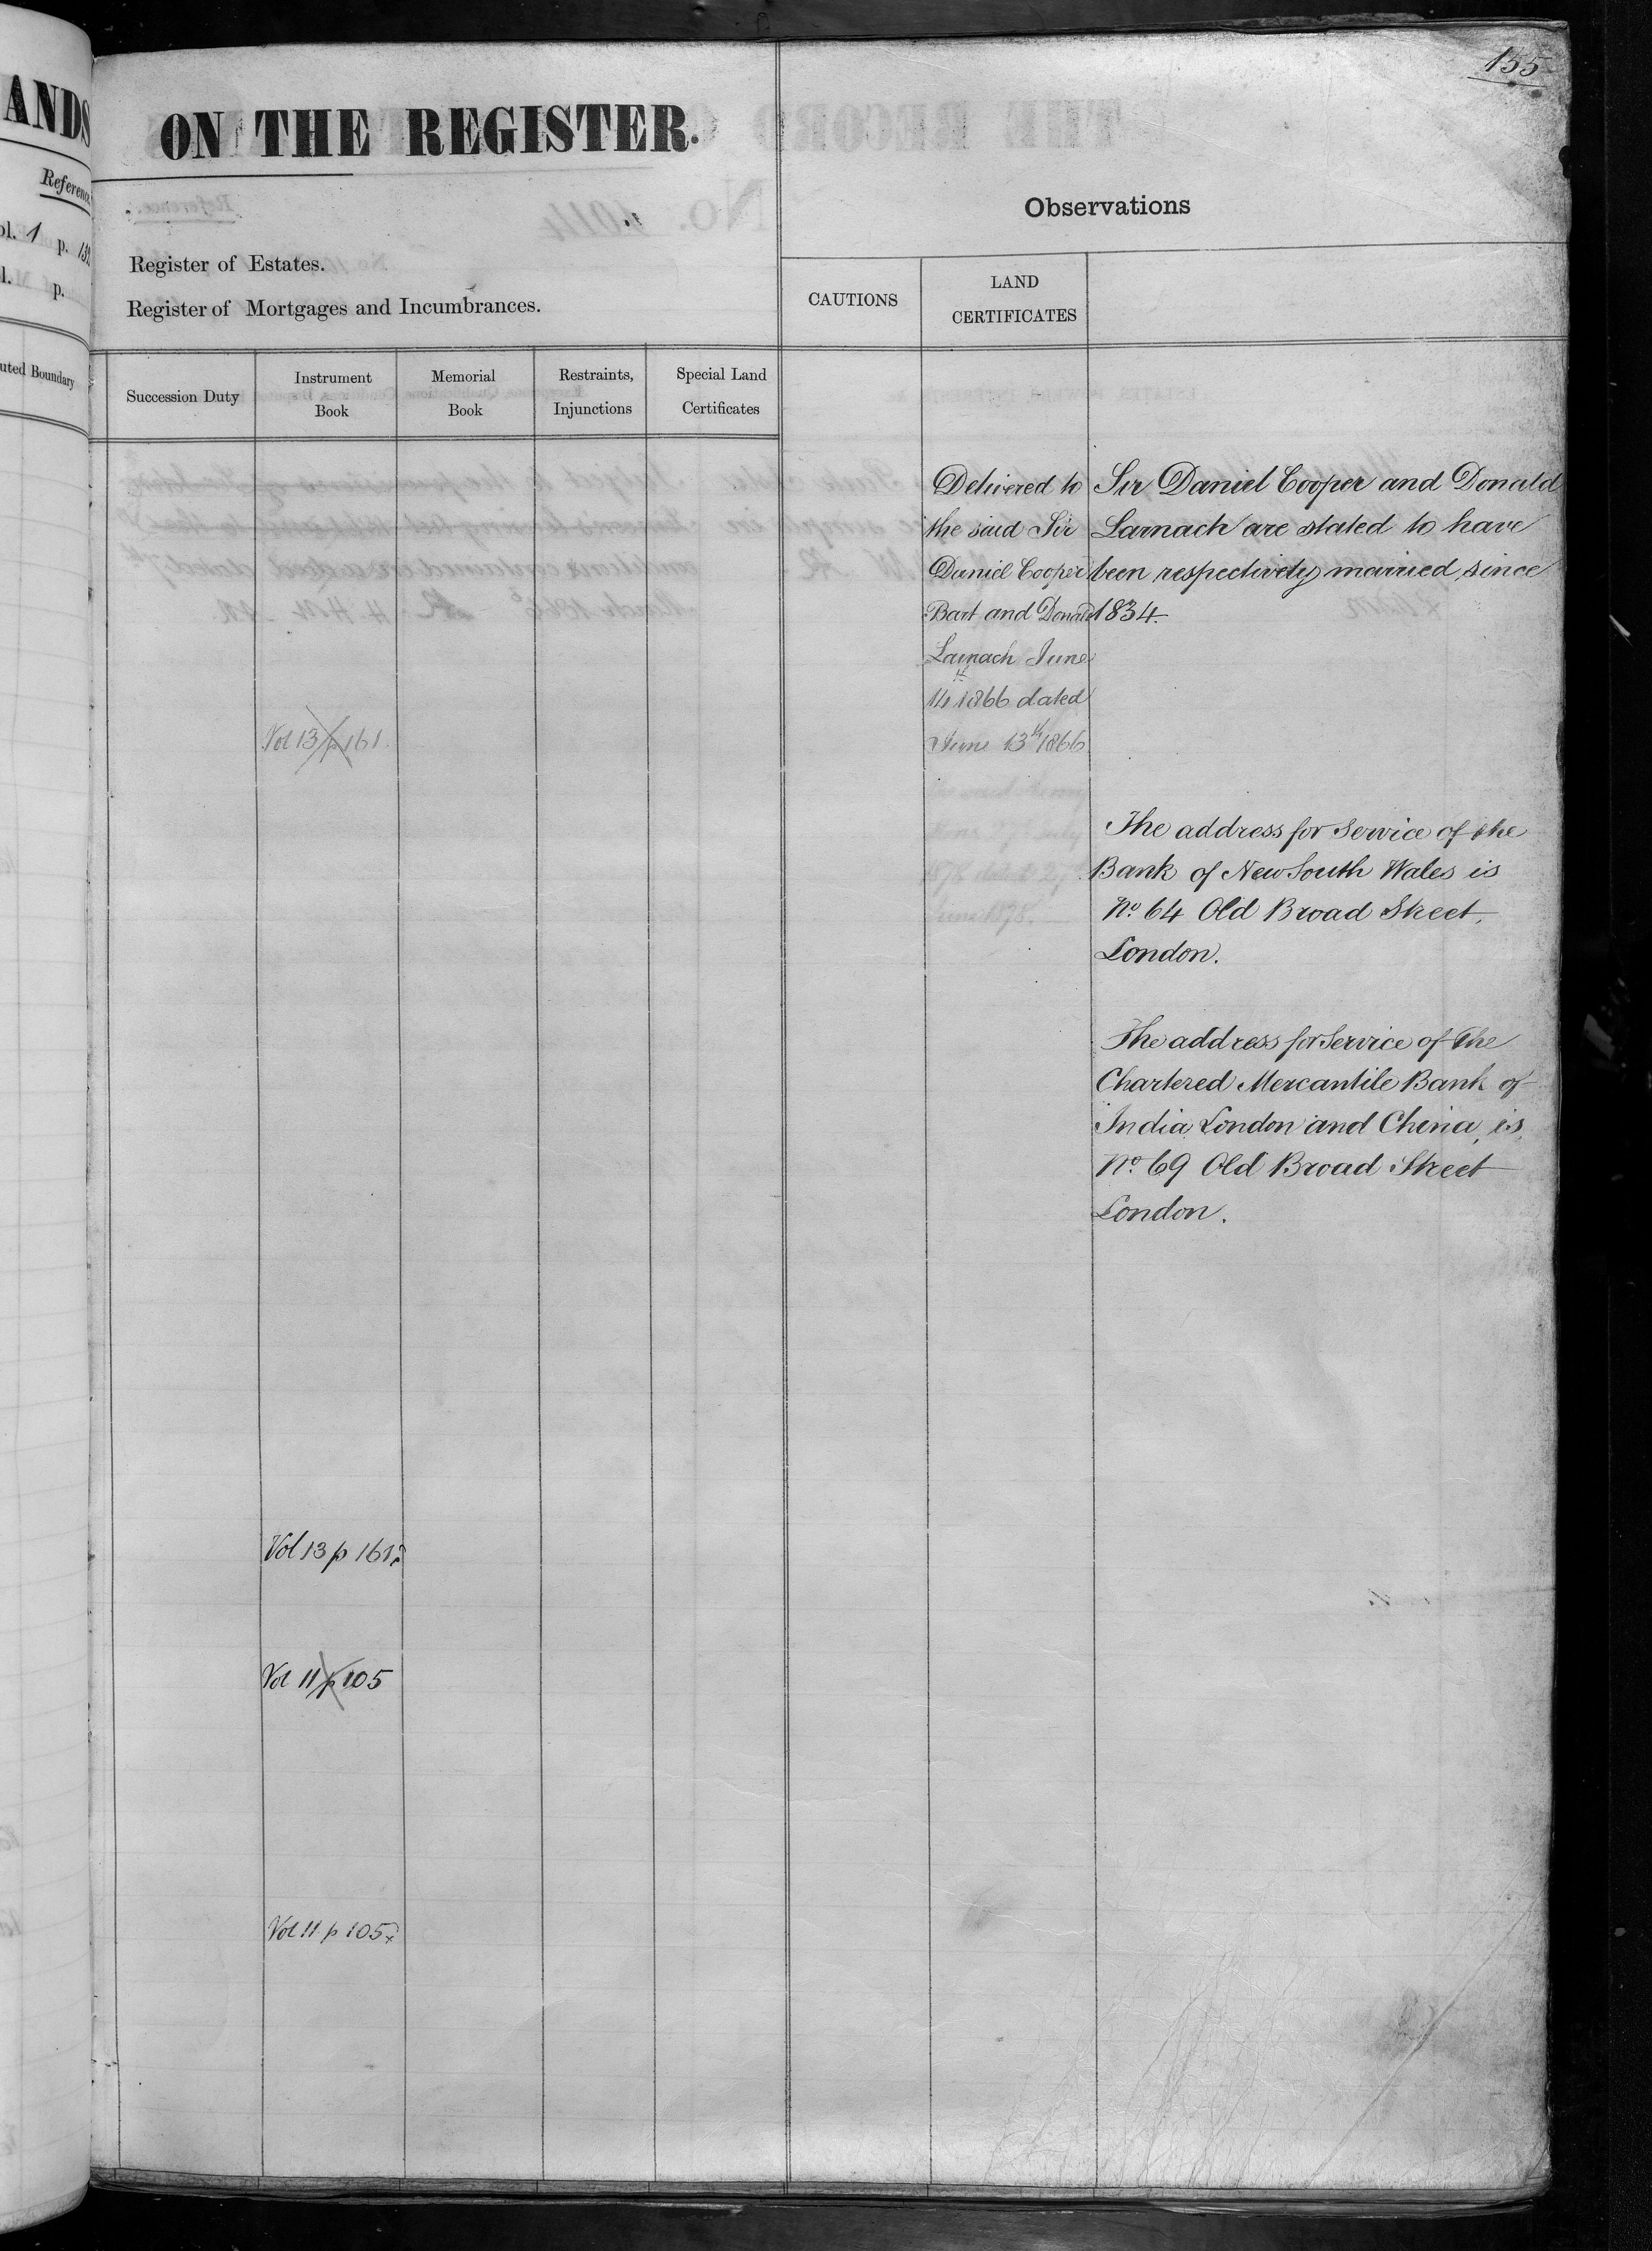 135
ANDS
ON THE REGISTER.
Observations
Reference
ol. 1 p. 132
l. p.
Register of Estates.
Register of Mortgages and Incumbrances.
CAUTIONS
LAND
CERTIFICATES
uted Boundary
Succession Duty
Instrument
Book
Memorial
Book
Restraints,
Injunctions
Special Land
Certificates
Vol 13 p 161.
Vol 13 p 161.
Vol 11 p 105
Vol 11 p 105
Delivered to
the said Sir
Daniel Cooper
Bart and Donald
Larnach June
14th 1866 dated
June 13th 1866
Sir Daniel Cooper and Donald
Larnach are stated to have
been respectively married since
1834.
The address for Service of the
Bank of New South Wales is
No. 64 Old Broad Street,
London.
The address for Service of The
Chartered Mercantile Bank of
India London and China, is
No. 69 Old Broad Street
London.